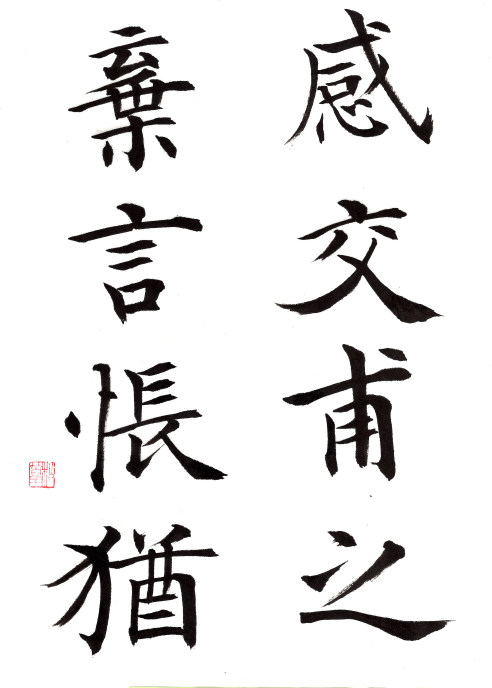 感交甫之
棄言悵猶